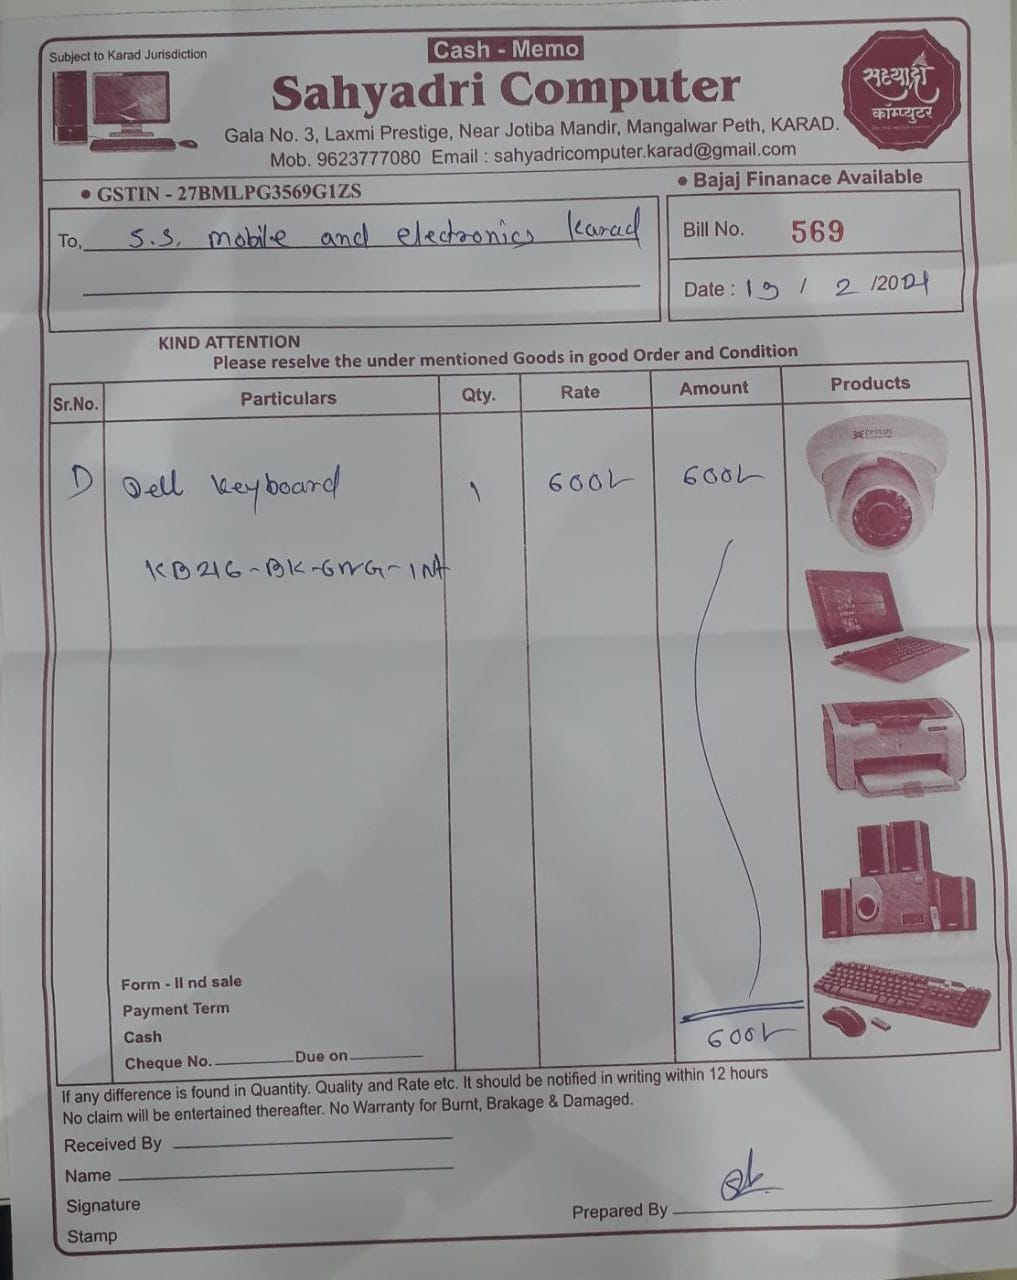 Subject to Karad Jurisdiction
Cash - Memo
Sahyadri Computer
सह्याद्री
कॉम्प्युटर
Gala No. 3, Laxmi Prestige, Near Jotiba Mandir, Mangalwar Peth, KARAD.
Mob. 9623777080 Email : sahyadricomputer.karad@gmail.com
• GSTIN - 27BMLPG3569G1ZS
• Bajaj Finanace Available
To, S.S. mobile and electronics Karad
Bill No. 569
Date : 19 / 2 /2021
KIND ATTENTION
Please reselve the under mentioned Goods in good Order and Condition
Sr.No. Particulars Qty. Rate Amount Products
1) Dell Keyboard 1 600/- 600/-
KB216-BK-GNG-INA
600/-
Form - II nd sale
Payment Term
Cash
Cheque No. Due on
If any difference is found in Quantity. Quality and Rate etc. It should be notified in writing within 12 hours
No claim will be entertained thereafter. No Warranty for Burnt, Brakage & Damaged.
Received By
Name
Signature
Stamp
Prepared By